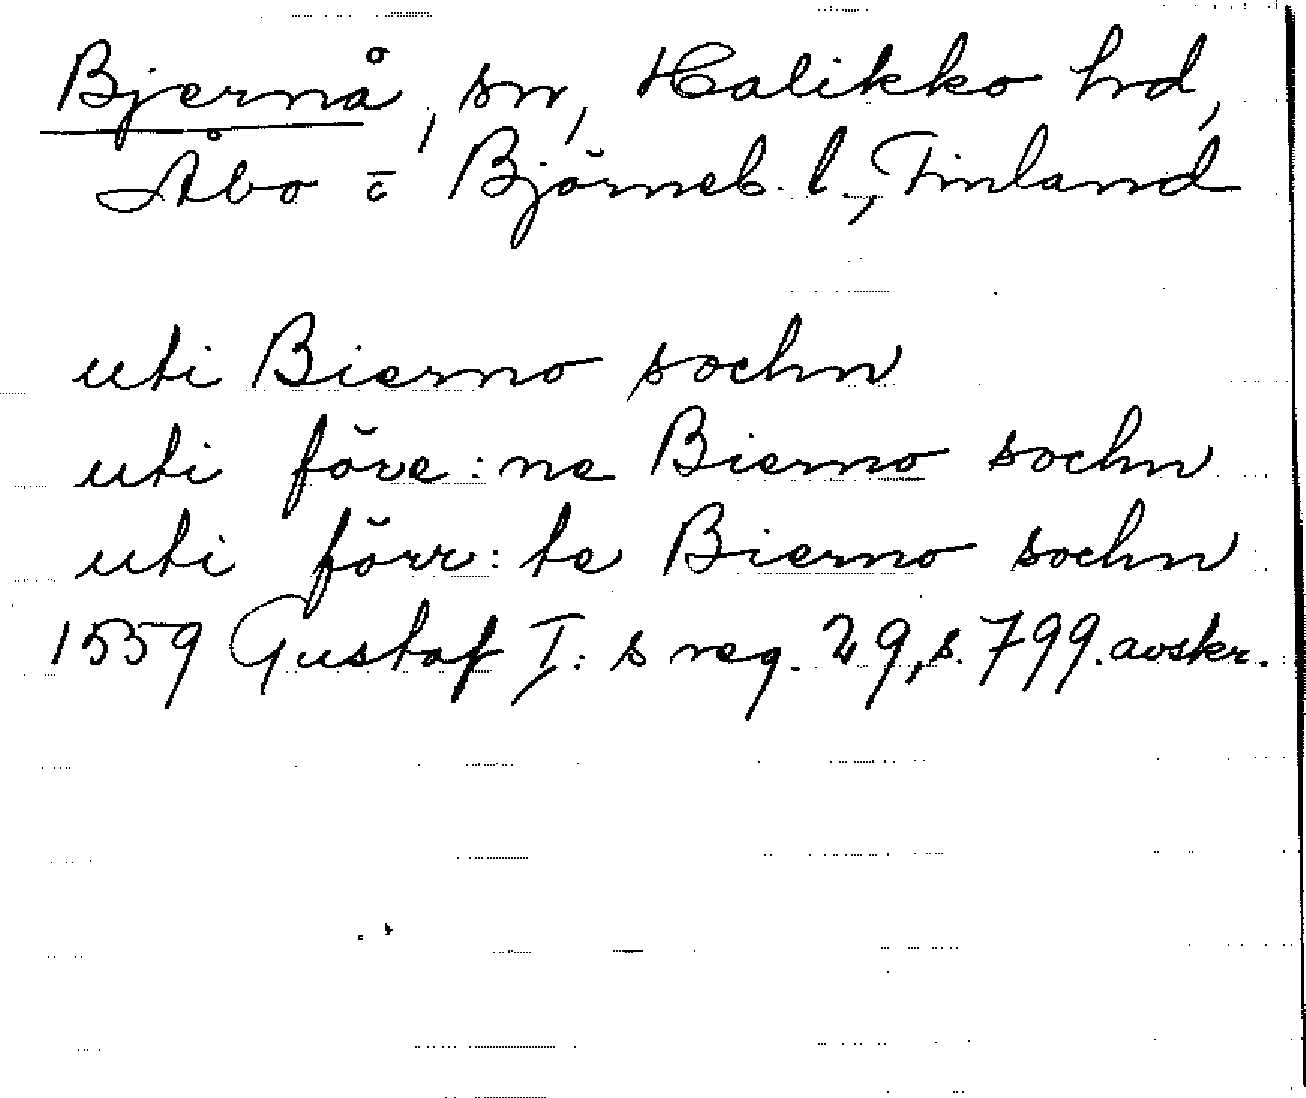 Bjärnå, sn, Halikko hd,
Åbo o. Björneb. l., Finland
uti Bierno sochn
uti före:ne Bierno sochn
uti förr:te Bierno sochn
1559 Gustaf I:s reg. 29, s. 799. avskr.